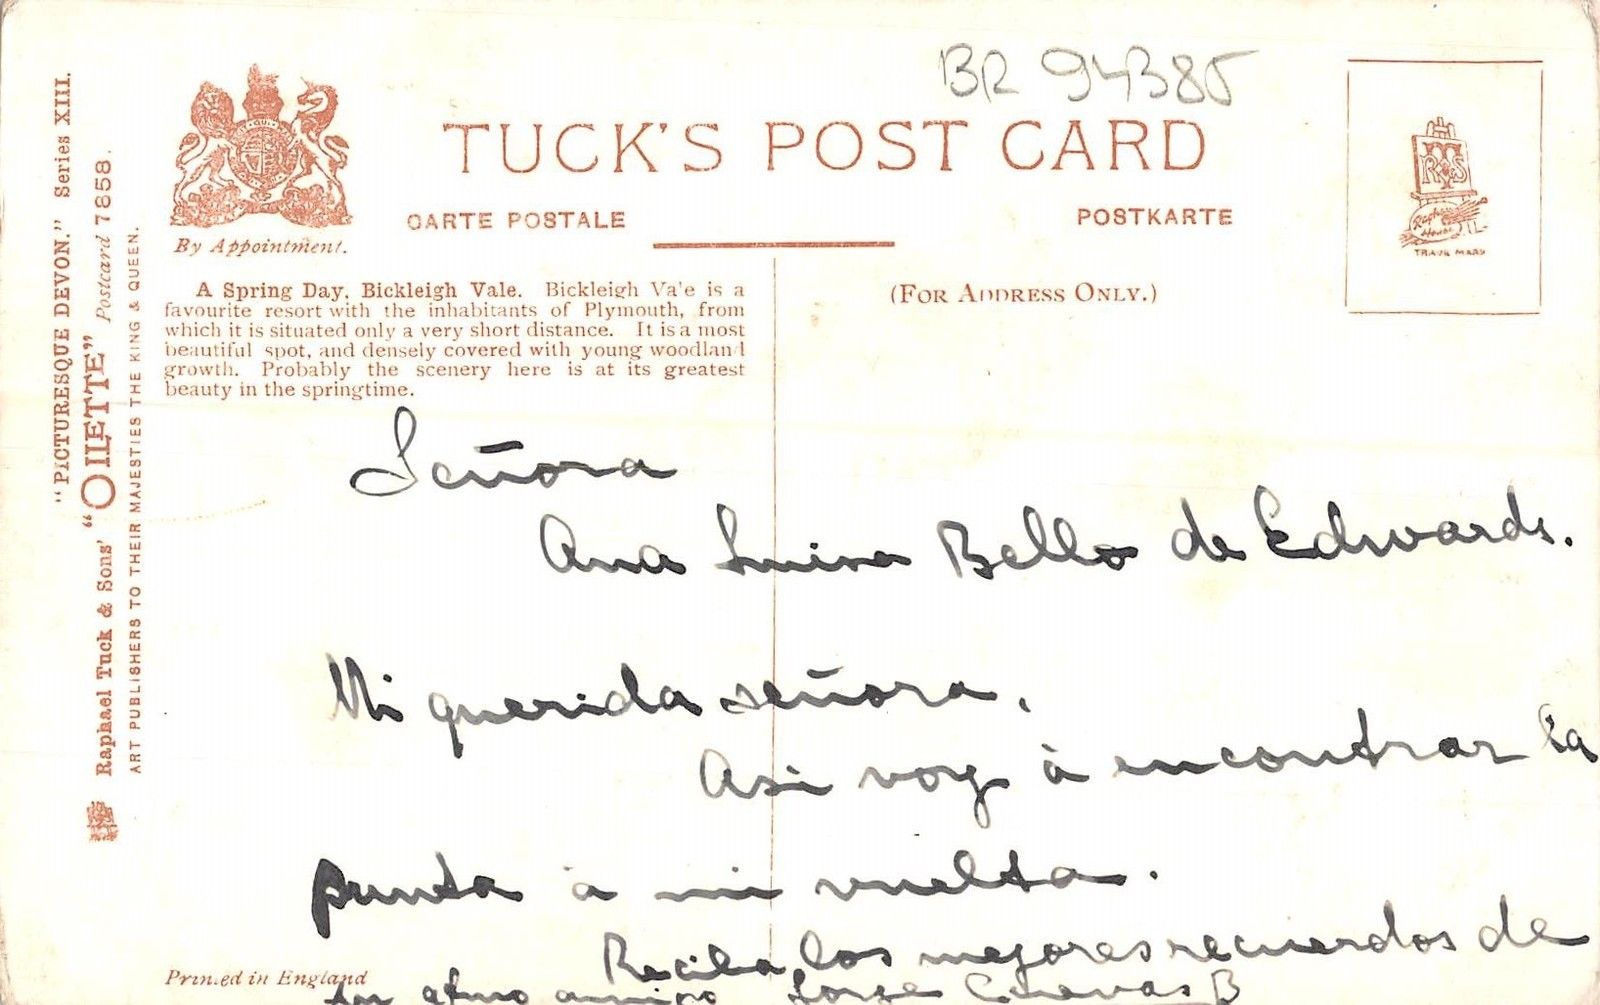 BR 94385
TUCK'S POST CARD
CARTE POSTALE
POSTKARTE
By Appointment.
(FOR ADDRESS ONLY.)
TRADE MARK
"PICTURESQUE DEVON." Series XIII.
Raphael Tuck & Sons' "OILETTE" Postcard 7858.
ART PUBLISHERS TO THEIR MAJESTIES THE KING & QUEEN.
A Spring Day, Bickleigh Vale. Bickleigh Va'e is a
favourite resort with the inhabitants of Plymouth, from
which it is situated only a very short distance. It is a most
beautiful spot, and densely covered with young woodland
growth. Probably the scenery here is at its greatest
beauty in the springtime.
Señora
Ana Luisa Bello de Edwards.
Mi querida señora,
Asi voy à encontrar la
punta à mi vuelta.
Reciba los mejores recuerdos de
su afmo amigo Jorge Cuevas B
Printed in England